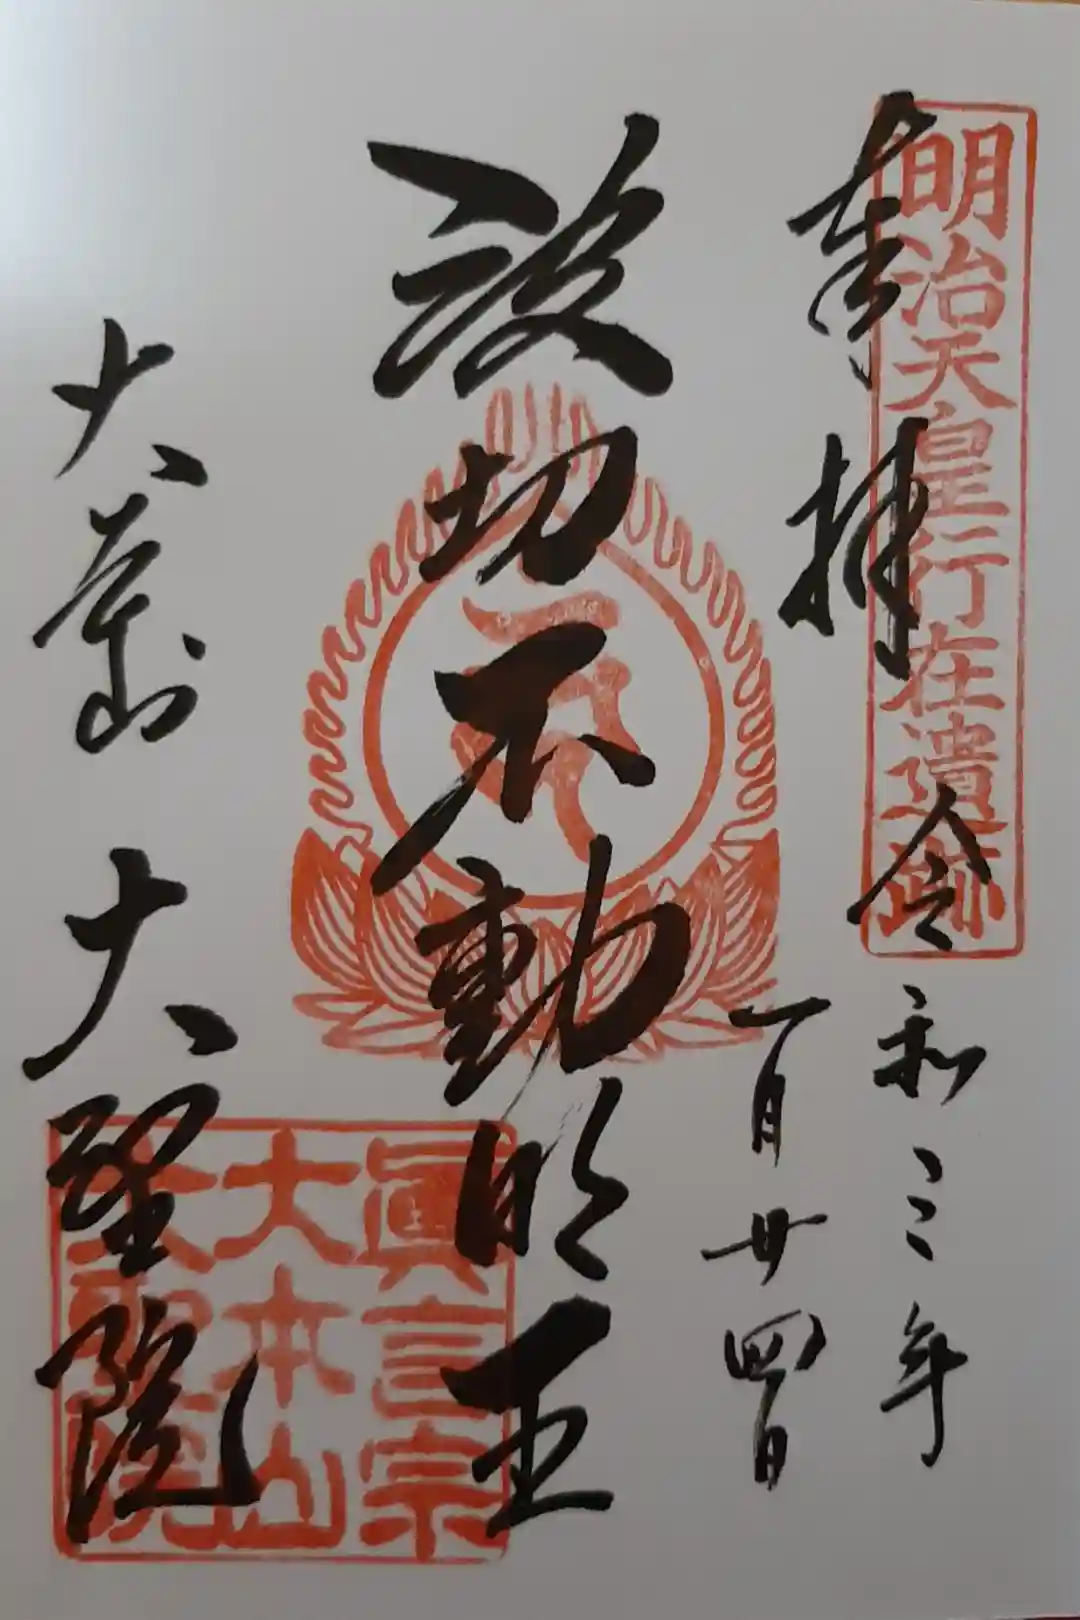 明治天皇行在遺跡
奉拝
令和三年
一月廿四日
波切不動明王
大本山 大聖院
眞言宗
大本山
大聖院